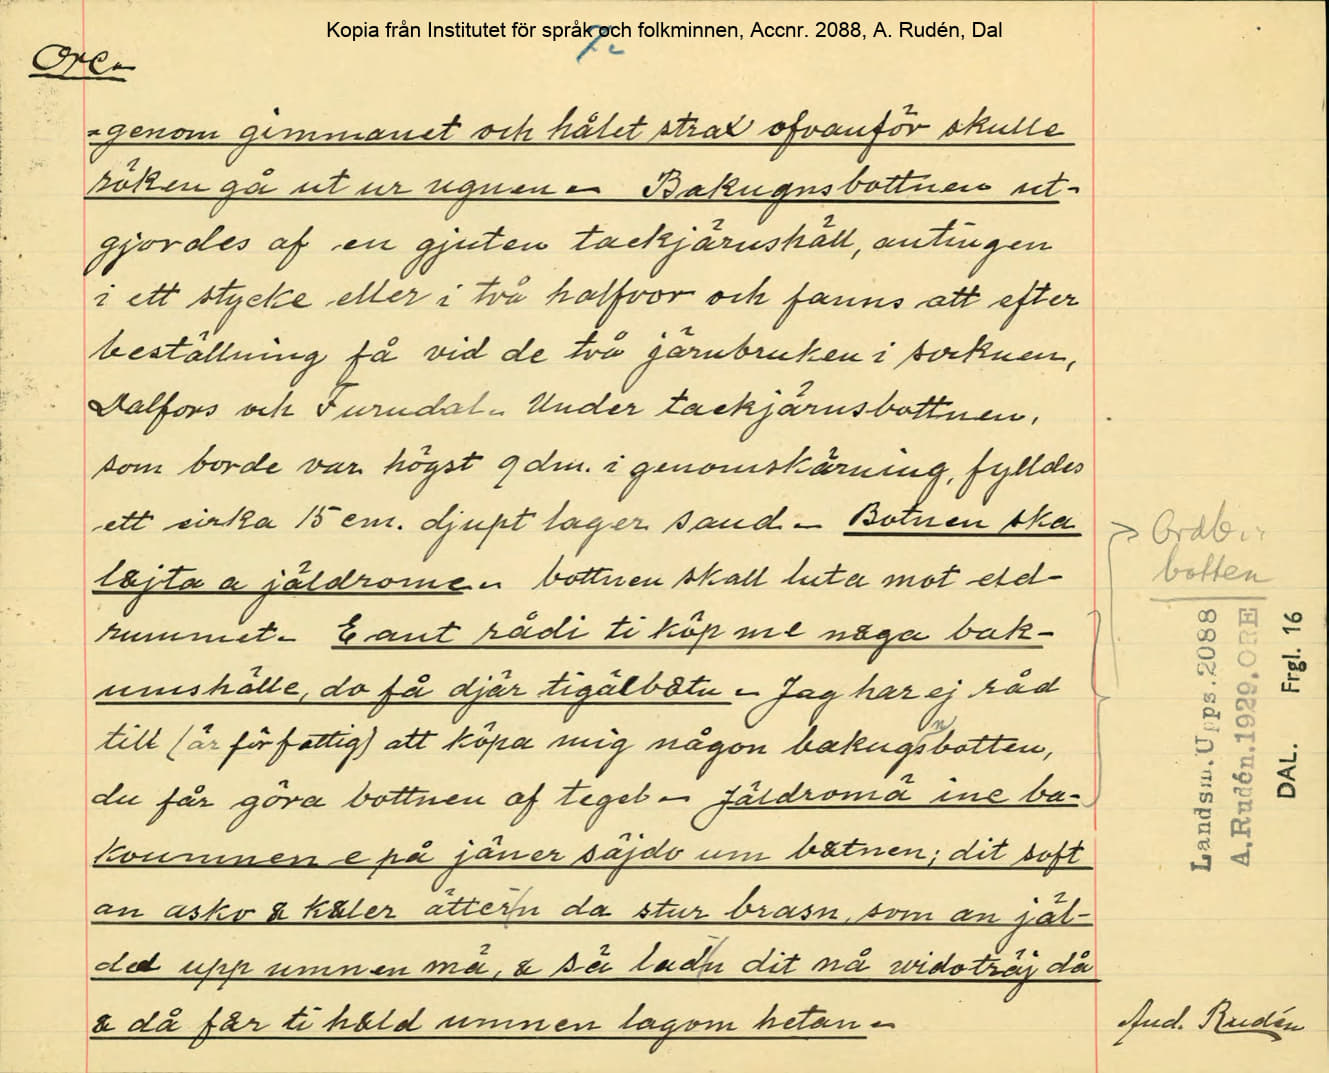 Kopia från Institutet för språk och folkminnen, Accnr. 2088, A. Rudén, Dal
7.
Ore.
=genom gimmanet och hålet strax ofvanför skulle
röken gå ut ur ugnen. - Bakugnsbottnen ut-
gjordes af en gjuten tackjärnshäll, antingen
i ett stycke eller i två halfvor och fanns att efter
beställning få vid de två järnbruken i socknen,
Dalfors och Furudal. Under tackjärnsbottnen,
som borde vara högst 9 dm. i genomskärning, fylldes
ett cirka 15 cm. djupt lager sand. - Botnen ska
läjta a jäldrome. bottnen skall luta mot eld-
rummet. - E ant rådi ti köp me någa bak-
umshälle, do få djär tigälbåtn. - Jag har ej råd
till (är för fattig) att köpa mig någon bakugnsbotten,
du får göra bottnen af tegel. - Jäldromä ine ba-
koumnen e på jäner säjdo um båtnen; dit soft
an asko & kåler ätter'n da stur brasn, som an jäl-
ded upp umnen mä, & sä lad'n dit nå vidoträj då
& då får ti håld umnen lagom hetan. -
Ordb.
botten
Landsm. Upps. 2088
A. Rudén. 1929. ORE
DAL. Frgl. 16
And. Rudén